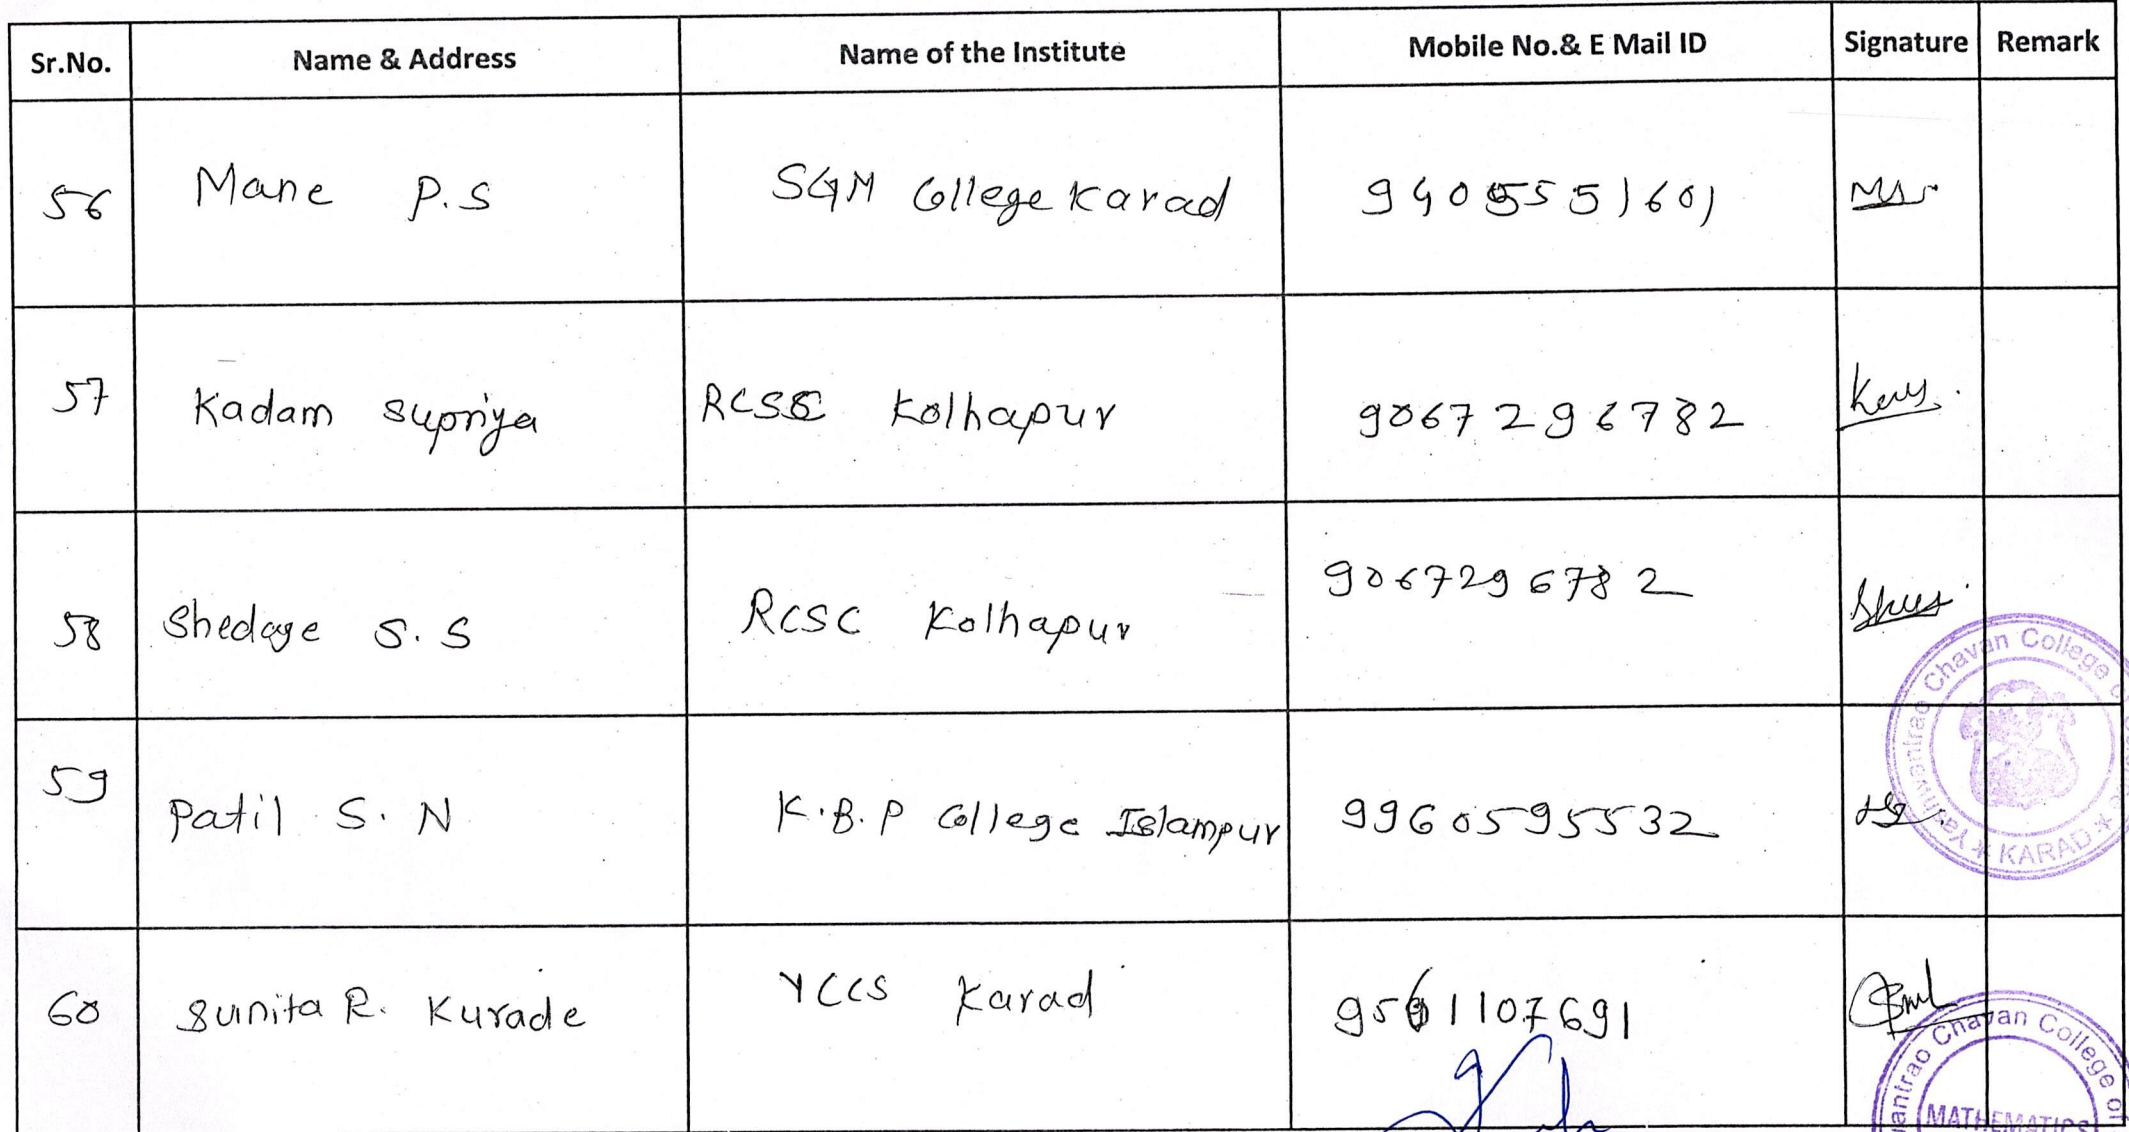 Sr.No. Name & Address Name of the Institute Mobile No.& E Mail ID Signature Remark
56 Mane P.S SGM College Karad 9405551601
57 Kadam Supriya RCSC Kolhapur 9067296782
58 Shedage S.S RCSC Kolhapur 9067296782
59 Patil S.N K.B.P College Islampur 9960595532
60 Sunita R. Kurade YCCS Karad 9561107691
Yashwantrao Chavan College of
KARAD
Chavan College of
MATHEMATICS